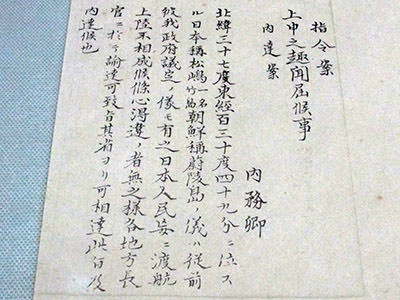 指令案
上申之趣聞届候事
内達案
内務卿
北緯三十七度東経百三十度四十九分ニ位ス
ル日本称松嶋一名竹島朝鮮称蔚陵島ノ儀ハ従前
彼我政府議定ノ儀モ有之日本人民妄ニ渡航
上陸不相成候條心得違ノ者無之様各地方長
官ニ於テ諭達可致旨其省ヨリ可相達此旨及
内達候也